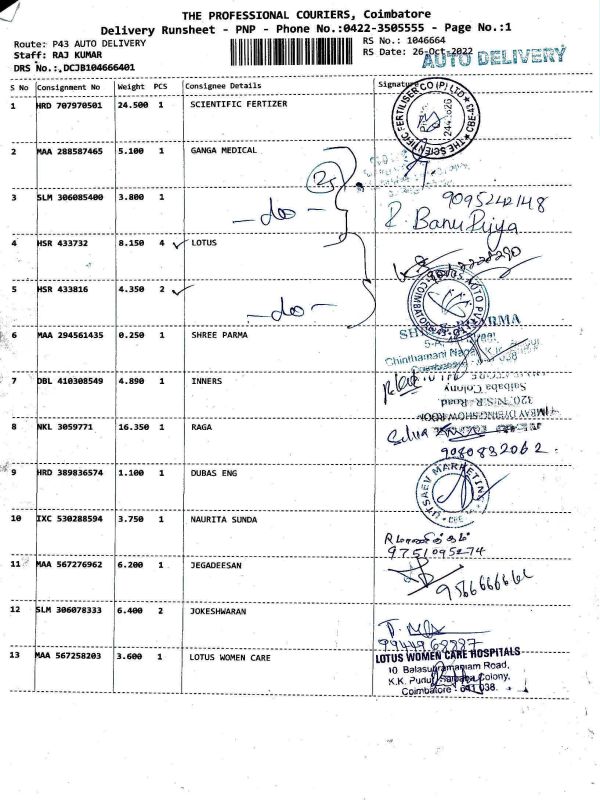 THE PROFESSIONAL COURIERS, Coimbatore
Delivery Runsheet - PNP - Phone No.:0422-3505555 - Page No.:1
Route: P43 AUTO DELIVERY
RS No.: 1046664
Staff: RAJ KUMAR
RS Date: 26-Oct-2022
AUTO DELIVERY
DRS No.:,DCJB104666401
S No Consignment No Weight PCS Consignee Details Signature
1 HRD 707970501 24.500 1 SCIENTIFIC FERTIZER
THE SCIENTIFIC FERTILISER CO (P) LTD CBE-43
2 MAA 288587465 5.100 1 GANGA MEDICAL
3 SLM 306085400 3.800 1
-do-
9095242148
R. Banu Priya
4 HSR 433732 8.150 4 LOTUS
5 HSR 433816 4.350 2
-do-
6 MAA 294561435 0.250 1 SHREE PARMA
Chinthamani Nagar, K.K.
7 DBL 410308549 4.890 1 INNERS
Saibaba Colony
320, N.S.R. Road
8 NKL 3059771 16.350 1 RAGA
Selva
9080832062
9 HRD 389836574 1.100 1 DUBAS ENG
UTSAEV MARKETING
CBE
10 IXC 530288594 3.750 1 NAURITA SUNDA
9751095274
11 MAA 567276962 6.200 1 JEGADEESAN
12 SLM 306078333 6.400 2 JOKESHWARAN
13 MAA 567258203 3.600 1 LOTUS WOMEN CARE
LOTUS WOMEN CARE HOSPITALS
10 Balasubramaniam Road,
K.K. Pudur, Saibaba Colony,
Coimbatore - 641 038.